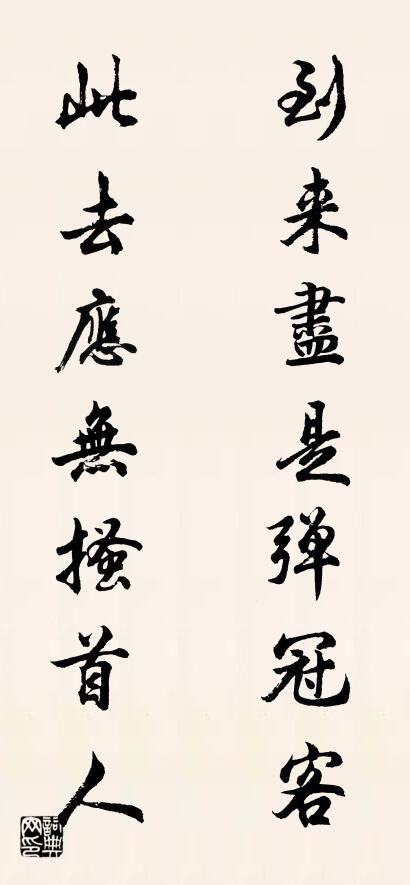 到来盡是弹冠客
此去應無搔首人